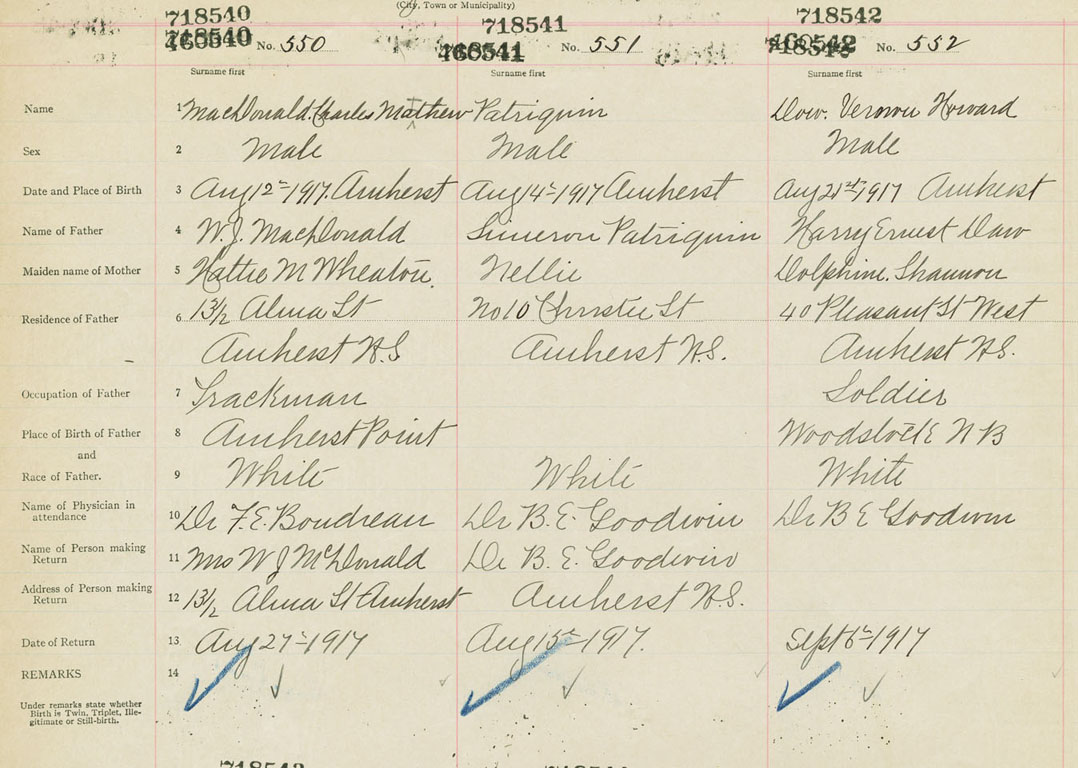 (City, Town or Municipality)
718540 718541 718542
No. 550 No. 551 No. 552
460540 460541 460542
Surname first Surname first Surname first
Name 1 MacDonald. Charles Mathew Patriquin Daw. Vernon Howard
Sex 2 Male Male Male
Date and Place of Birth 3 Aug 12th 1917. Amherst Aug 14th 1917 Amherst Aug 21st 1917 Amherst
Name of Father 4 W. J. MacDonald Simeron Patriquin Harry Ernest Daw
Maiden name of Mother 5 Hattie M Wheaton. Nellie Dolphine. Shannon
Residence of Father 6 13 1/2 Alma St No 10 Christie St 40 Pleasant St West
Amherst N.S Amherst N.S. Amherst N.S.
Occupation of Father 7 Trackman Soldier
Place of Birth of Father 8 Amherst Point Woodstock N B
and
Race of Father. 9 White White White
Name of Physician in attendance 10 Dr F. E. Boudreau Dr B. E. Goodwin Dr B E Goodwin
Name of Person making Return 11 Mrs W J McDonald Dr B. E. Goodwin
Address of Person making Return 12 13 1/2 Alma St Amherst Amherst N.S.
Date of Return 13 Aug 27th 1917 Aug 15th 1917. Sept 6th 1917
REMARKS 14
Under remarks state whether
Birth is Twin, Triplet, Ille-
gitimate or Still-birth.
718543